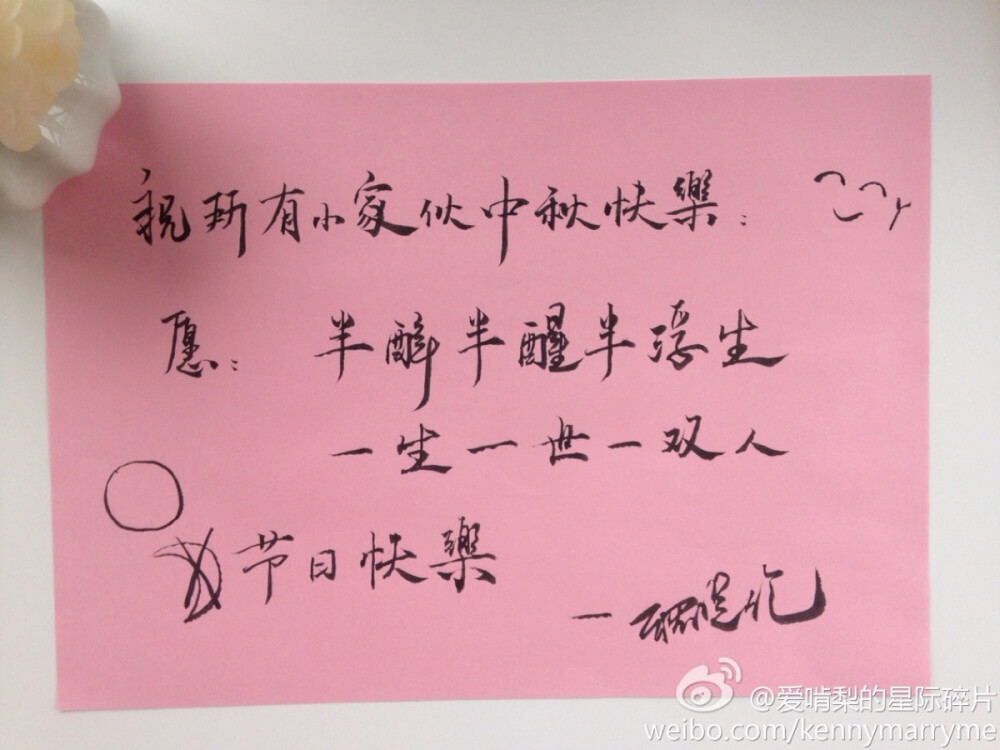 祝所有小家伙中秋快樂:
愿: 半醉半醒半浮生
一生一世一双人
节日快樂
@爱啃梨的星际碎片
weibo.com/kennymarryme